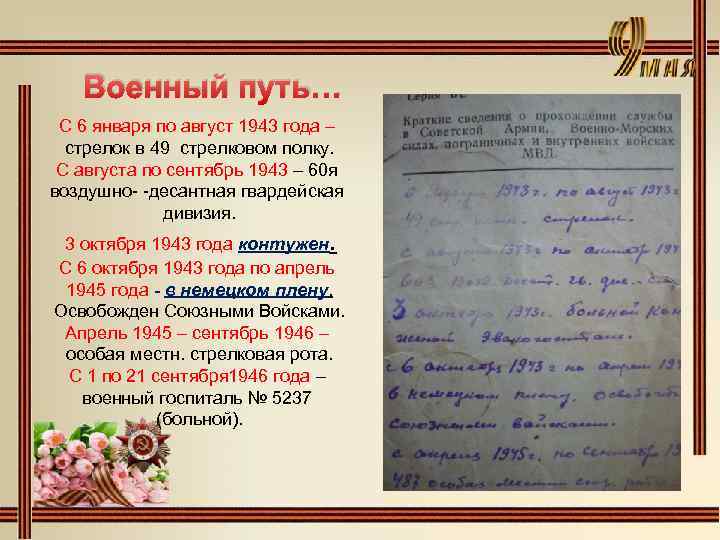 9 МАЯ
Военный путь…
С 6 января по август 1943 года –
стрелок в 49 стрелковом полку.
С августа по сентябрь 1943 – 60я
воздушно- -десантная гвардейская
дивизия.
3 октября 1943 года контужен.
С 6 октября 1943 года по апрель
1945 года - в немецком плену.
Освобожден Союзными Войсками.
Апрель 1945 – сентябрь 1946 –
особая местн. стрелковая рота.
С 1 по 21 сентября1946 года –
военный госпиталь № 5237
(больной).
Серия
Краткие сведения о прохождении службы
в Советской Армии, Военно-Морских
силах, пограничных и внутренних войсках
МВД.
1943 г. по август 1943
49 стр. стрелок.
с августа 1943 г по
гв. див. стр
3 октября 1943г. больной кон
женой Эвакогоспиталь
с 6 октября 1943 г по апрель 194
в немецком плену. освобож
союзными войсками.
с апреля 1945г. по сентябрь 194
487 особая местн стр. рот